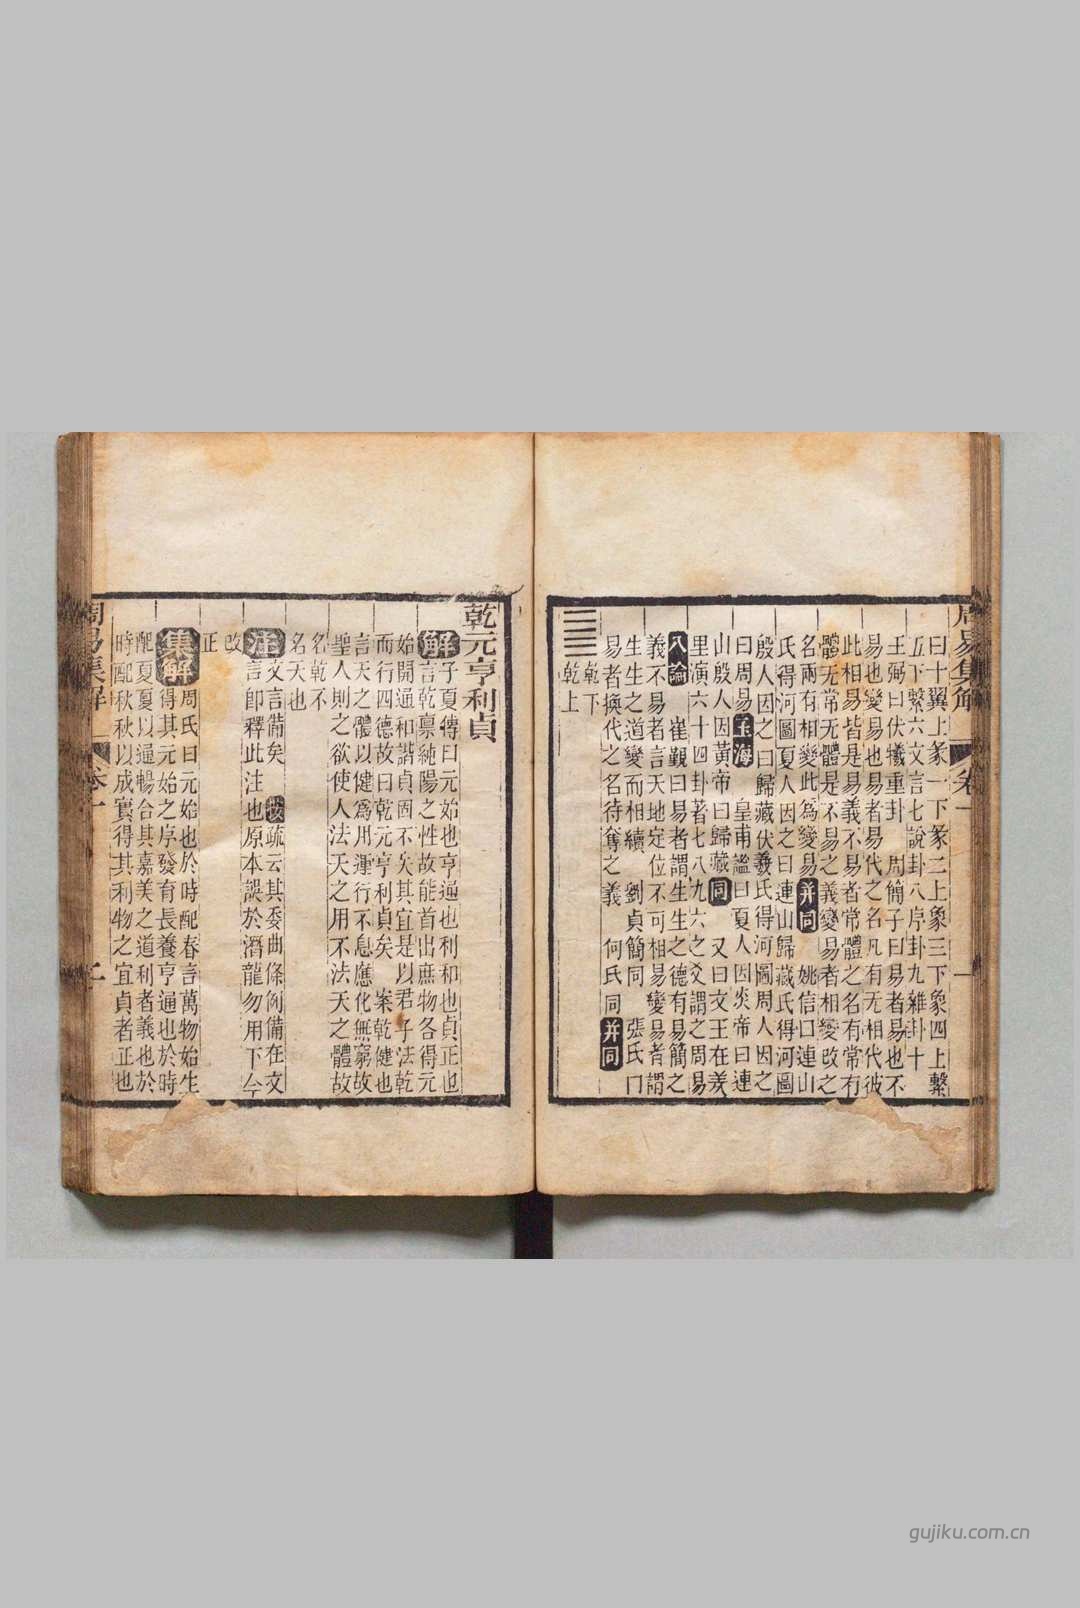 周易集解 卷一 一
曰十翼上彖一下彖二上象三下象四上繫
五下繫六文言七說卦八序卦九雜卦十
王弼曰伏犧重卦 周簡子曰易者易也不
易也變易也易者易代之名凡有无相代彼
此相易皆是易義不易者常體之名有常有
體无常无體是不易之義變易者相變改之
名兩有相變此為變易 并同 姚信曰連山
氏得河圖夏人因之曰連山歸藏氏得河圖
殷人因之曰歸藏伏羲氏得河圖周人因之
曰周易 玉海 皇甫謐曰夏人因炎帝曰連
山殷人因黃帝曰歸藏 同 又曰文王在羑
里演六十四卦著七八九六之爻謂之周易
八論 崔覲曰易者謂生生之德有易簡之
義不易者言天地定位不可相易變易者謂
生生之道變而相續 劉貞簡同 張氏
易者換代之名待奪之義 何氏同 并同
乾下
乾上
乾元亨利貞
解 子夏傳曰元始也亨通也利和也貞正也
言乾稟純陽之性故能首出庶物各得元
始開通和諧貞固不失其宜是以君子法乾
而行四德故曰乾元亨利貞矣 案乾健也
言天之體以健為用運行不息應化無窮故
聖人則之欲使人法天之用不法天之體故
名乾不
名天也
注 文言備矣 按疏云其委曲條例備在文
言即釋此注也原本誤於潛龍勿用下今
改
正
集解 周氏曰元始也於時配春言萬物始生
得其元始之序發育長養亨通也於時
配夏夏以通暢合其嘉美之道利者義也於
時配秋秋以成實得其利物之宜貞者正也
周易集解 卷一 二
gujiku.com.cn